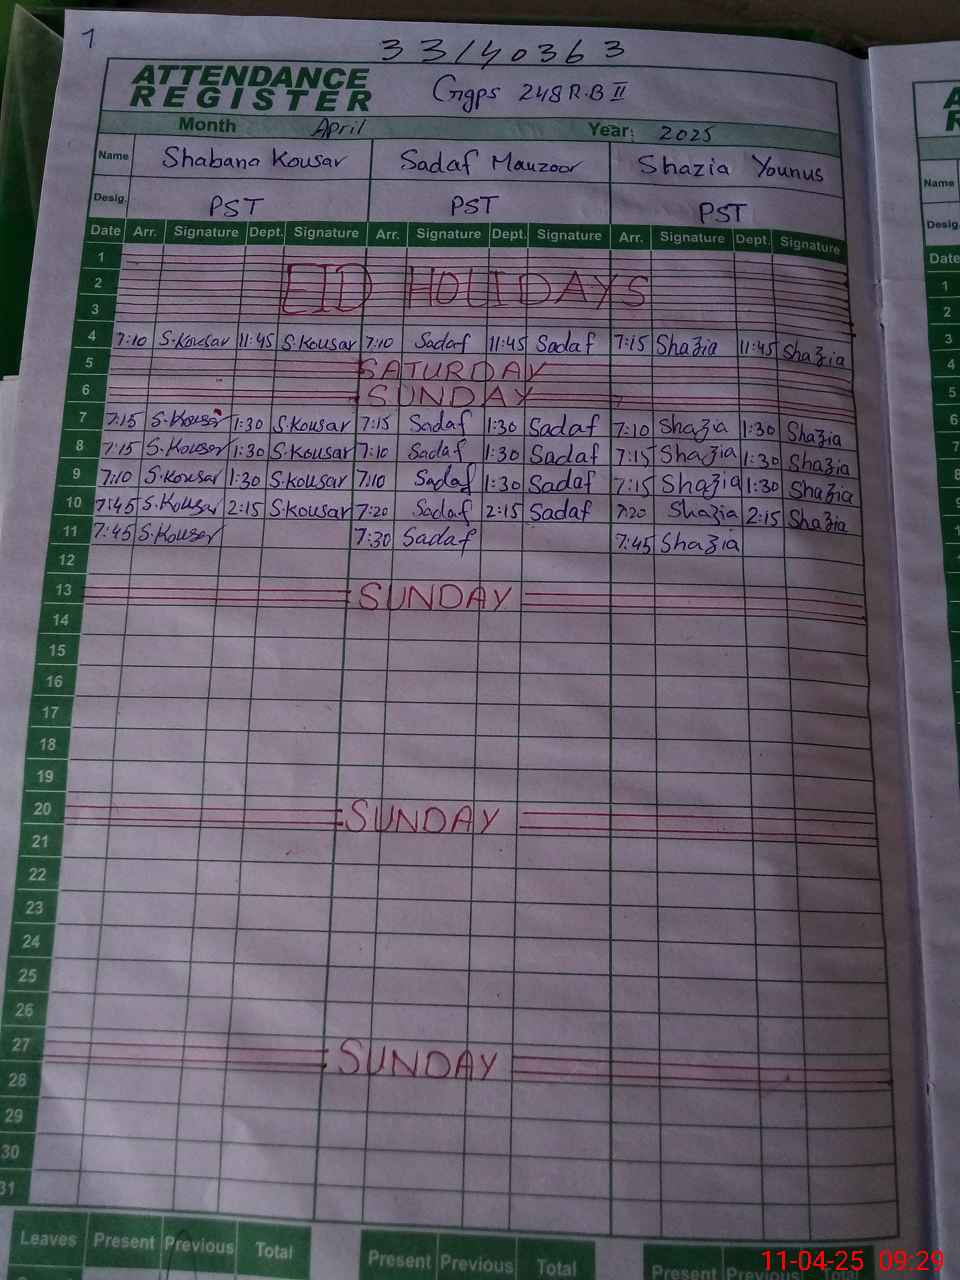 1
33140363
ATTENDANCE
REGISTER
Ggps 248 R.B II
Month April Year: 2025
Name Shabana Kousar Sadaf Manzoor Shazia Younus
Desig. PST PST PST
Date Arr. Signature Dept. Signature Arr. Signature Dept. Signature Arr. Signature Dept. Signature
1
2 EID HOLIDAYS
3
4 7:10 S.Kousar 11:45 S.Kousar 7:10 Sadaf 11:45 Sadaf 7:15 Shazia 11:45 Shazia
5 SATURDAY
6 SUNDAY
7 7:15 S.Kousar 1:30 S.Kousar 7:15 Sadaf 1:30 Sadaf 7:10 Shazia 1:30 Shazia
8 7:15 S.Kousar 1:30 S.Kousar 7:10 Sadaf 1:30 Sadaf 7:15 Shazia 1:30 Shazia
9 7:10 S.Kousar 1:30 S.Kousar 7:10 Sadaf 1:30 Sadaf 7:15 Shazia 1:30 Shazia
10 7:45 S.Kousar 2:15 S.Kousar 7:20 Sadaf 2:15 Sadaf 7:20 Shazia 2:15 Shazia
11 7:45 S.Kousar 7:30 Sadaf 7:45 Shazia
12
13 SUNDAY
14
15
16
17
18
19
20 SUNDAY
21
22
23
24
25
26
27 SUNDAY
28
29
30
31
Leaves Present Previous Total Present Previous Total Present Previous Total
11-04-25 09:29
Name
Desig.
Date
1
2
3
4
5
6
7
8
9